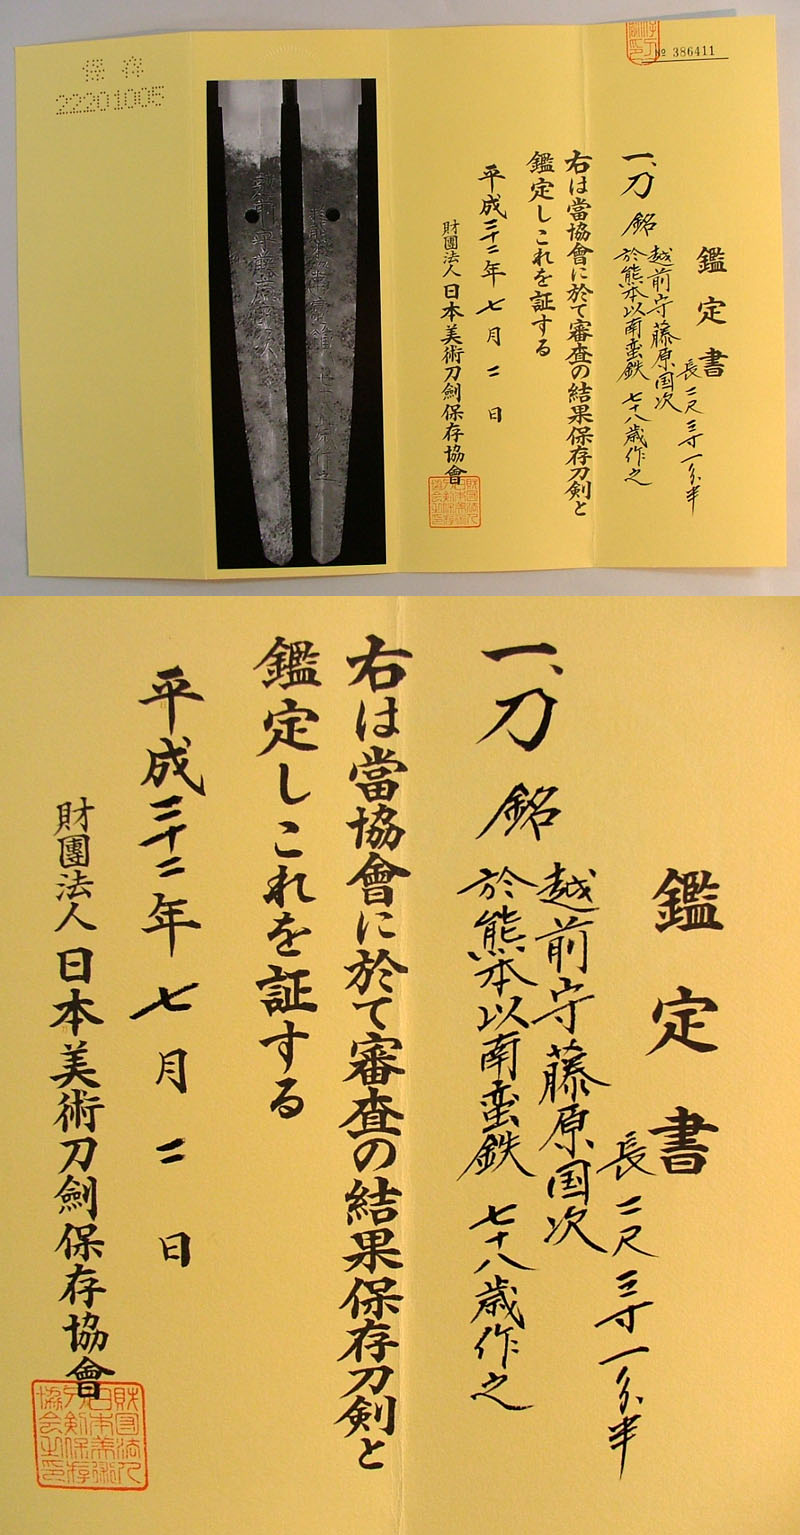 № 386411
鑑定書
長二尺三寸一分半
一、刀 銘 越前守藤原国次
於熊本以南蛮鉄 七十八歳作之
右は當協會に於て審査の結果保存刀剣と
鑑定しこれを証する
平成二十二年七月二日
財團法人日本美術刀劍保存協會
保存
22201005
鑑定書
長二尺三寸一分半
一、刀 銘 越前守藤原国次
於熊本以南蛮鉄 七十八歳作之
右は當協會に於て審査の結果保存刀剣と
鑑定しこれを証する
平成二十二年七月二日
財團法人日本美術刀劍保存協會